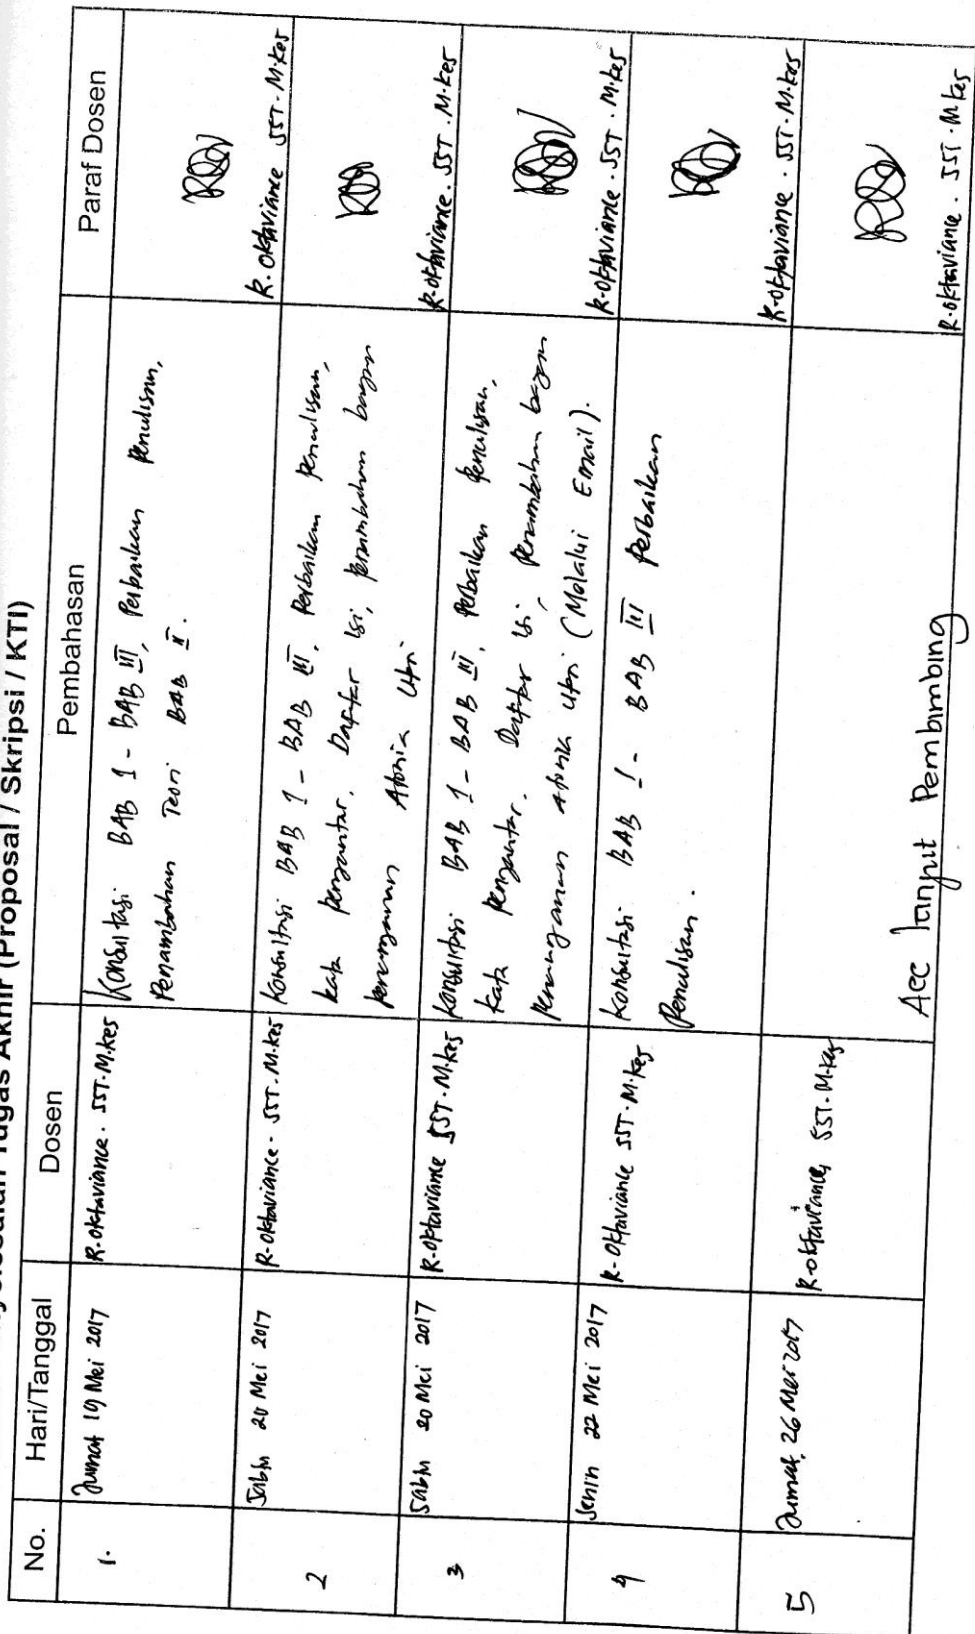 Tugas Akhir (Proposal / Skripsi / KTI)
No. Hari/Tanggal Dosen Pembahasan Paraf Dosen
1. Jumat 19 Mei 2017 R. Oktaviance . SST . M.Kes Konsultasi BAB I - BAB III, Perbaikan Penulisan,
Penambahan Teori BAB II.
R. Oktaviance SST . M.Kes
2 Sabtu 20 Mei 2017 R. Oktaviance . SST . M.Kes Konsultasi BAB I - BAB III, Perbaikan Penulisan,
kata pengantar, Daftar Isi, penambahan bagan
penanganan Atonia Uteri
R. Oktaviance . SST . M.Kes
3 Sabtu 20 Mei 2017 R. Oktaviance SST . M.Kes Konsultasi BAB I - BAB III, Perbaikan Penulisan,
kata pengantar, Daftar Isi, penambahan bagan
penanganan atonia uteri (Melalui Email).
R. Oktaviance . SST . M.Kes
4 Senin 22 Mei 2017 R. Oktaviance SST . M.Kes Konsultasi BAB I - BAB III Perbaikan
Penulisan.
R. Oktaviance . SST . M.Kes
5 Jumat, 26 Mei 2017 R. Oktaviance, SST . M.Kes
Acc lanjut Pembimbing
R. Oktaviance . SST . M.Kes